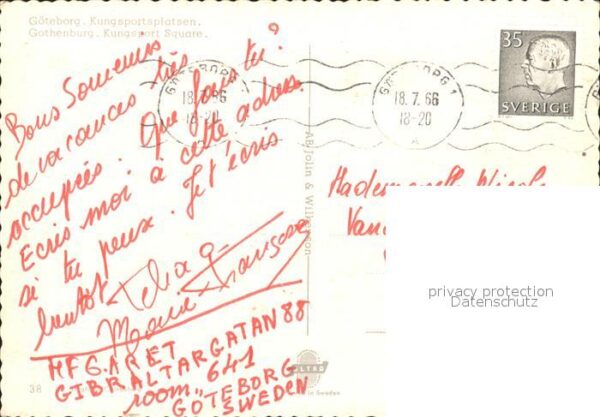 Göteborg. Kungsportsplatsen.
Gothenburg. Kungsport Square.
Bons Souvenirs
de vacances très
occupées. Que fais tu?
Ecris moi à cette adresse
si tu peux. Je t'écris
bientôt
Marie Françoise
MF GARET
GIBRALTARGATAN 88
room 641
GÖTEBORG
SWEDEN
38
AB Jolin & Wilkenson
ULTRA
in Sweden
GÖTEBORG 1
18.7.66
18-20
GÖTEBORG 1
18.7.66
18-20
35
SVERIGE
Mademoiselle Nicole
Van
privacy protection
Datenschutz